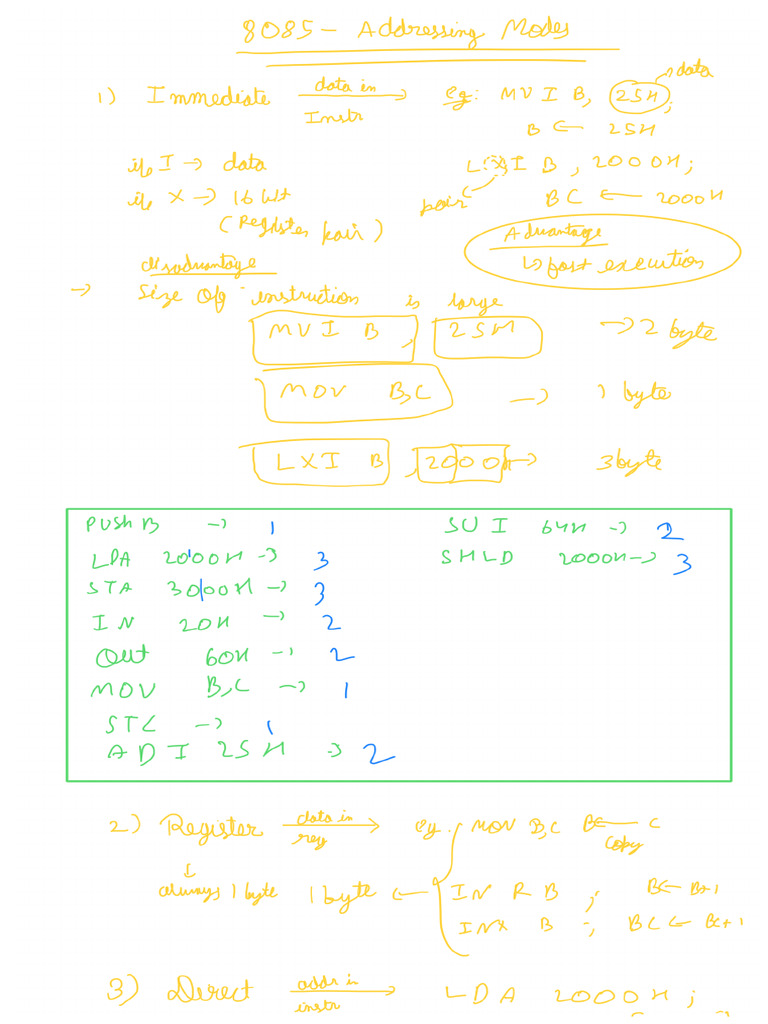 8085 - Addressing Modes
1) Immediate data in Instr → eg: MVI B, 25H; → data
B ← 25H
if I → data LXI B, 2000H;
if X → 16 bit pair BC ← 2000H
(Register pair) Advantage
↳ fast execution
disadvantage
→ Size of instruction is large
MVI B, 25H → 2 byte
MOV B,C → 1 byte
LXI B, 2000H → 3 byte
PUSH B → 1 SUI 64H → 2
LDA 2000H → 3 SHLD 2000H → 3
STA 3000H → 3
IN 20H → 2
OUT 60H → 2
MOV B,C → 1
STC → 1
ADI 25H → 2
2) Register data in reg → eg. MOV B,C B ← C
copy
always 1 byte 1 byte ← INR B ; B ← B+1
INX B ; BC ← BC+1
3) Direct addr in instr → LDA 2000H ;